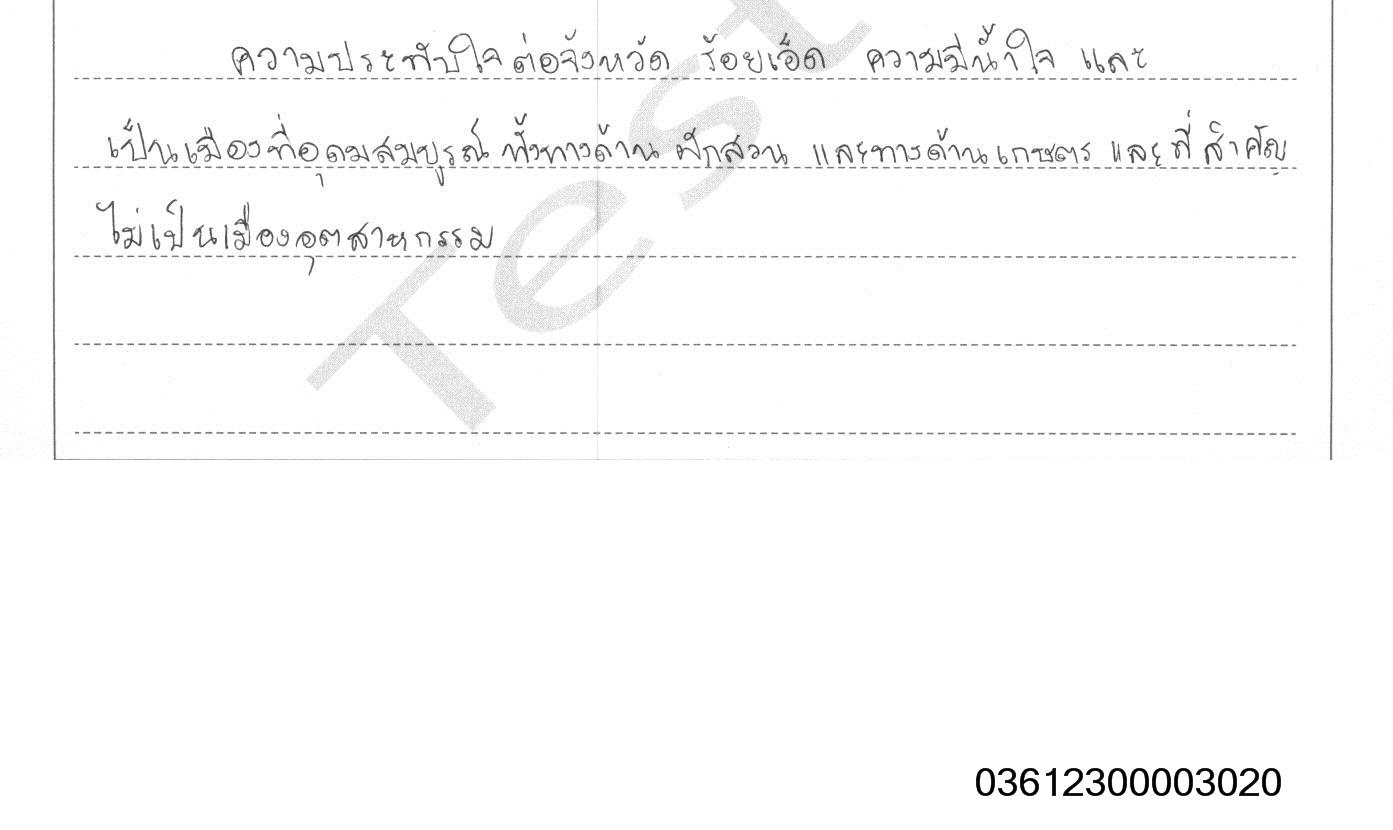 ความประทับใจต่อจังหวัด ร้อยเอ็ด ความมีน้ำใจ และ
เป็นเมืองที่อุดมสมบูรณ์ ทั้งทางด้าน ผักสวน และทางด้านเกษตร และที่สำคัญ
ไม่เป็นเมืองอุตสาหกรรม
Test
03612300003020